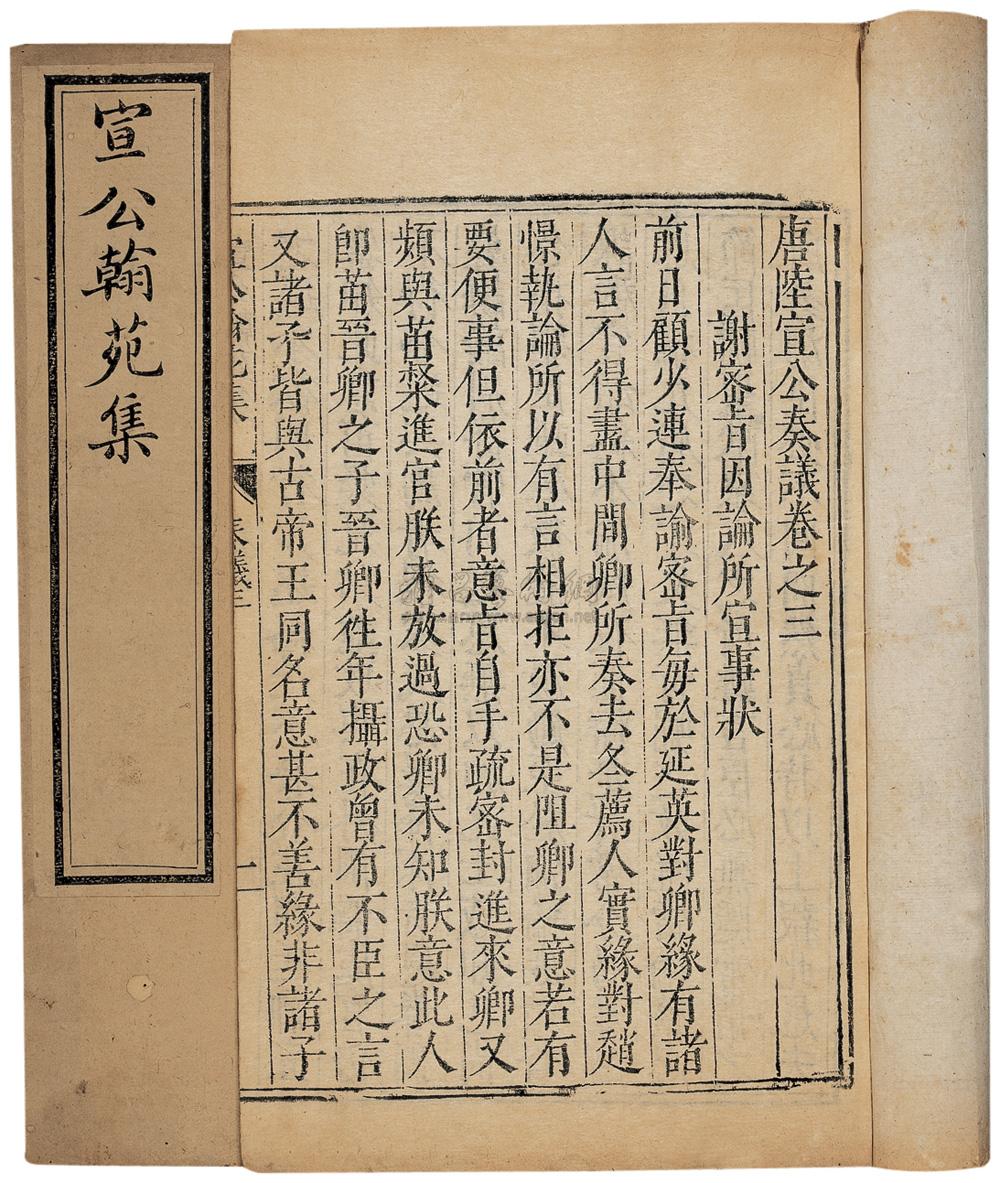 宣公翰苑集
唐陸宣公奏議卷之三
謝密旨因論所宣事狀
前日顧少連奉諭密旨每於延英對卿緣有諸
人言不得盡中間卿所奏去冬薦人實緣對趙
憬執論所以有言相拒亦不是阻卿之意若有
要便事但依前者意旨自手疏密封進來卿又
頻與苗粲進官朕未放過恐卿未知朕意此人
卽苗晉卿之子晉卿徃年攝政曾有不臣之言
又諸子皆與古帝王同名意甚不善緣非諸子
宣公翰苑集 奏議三 一